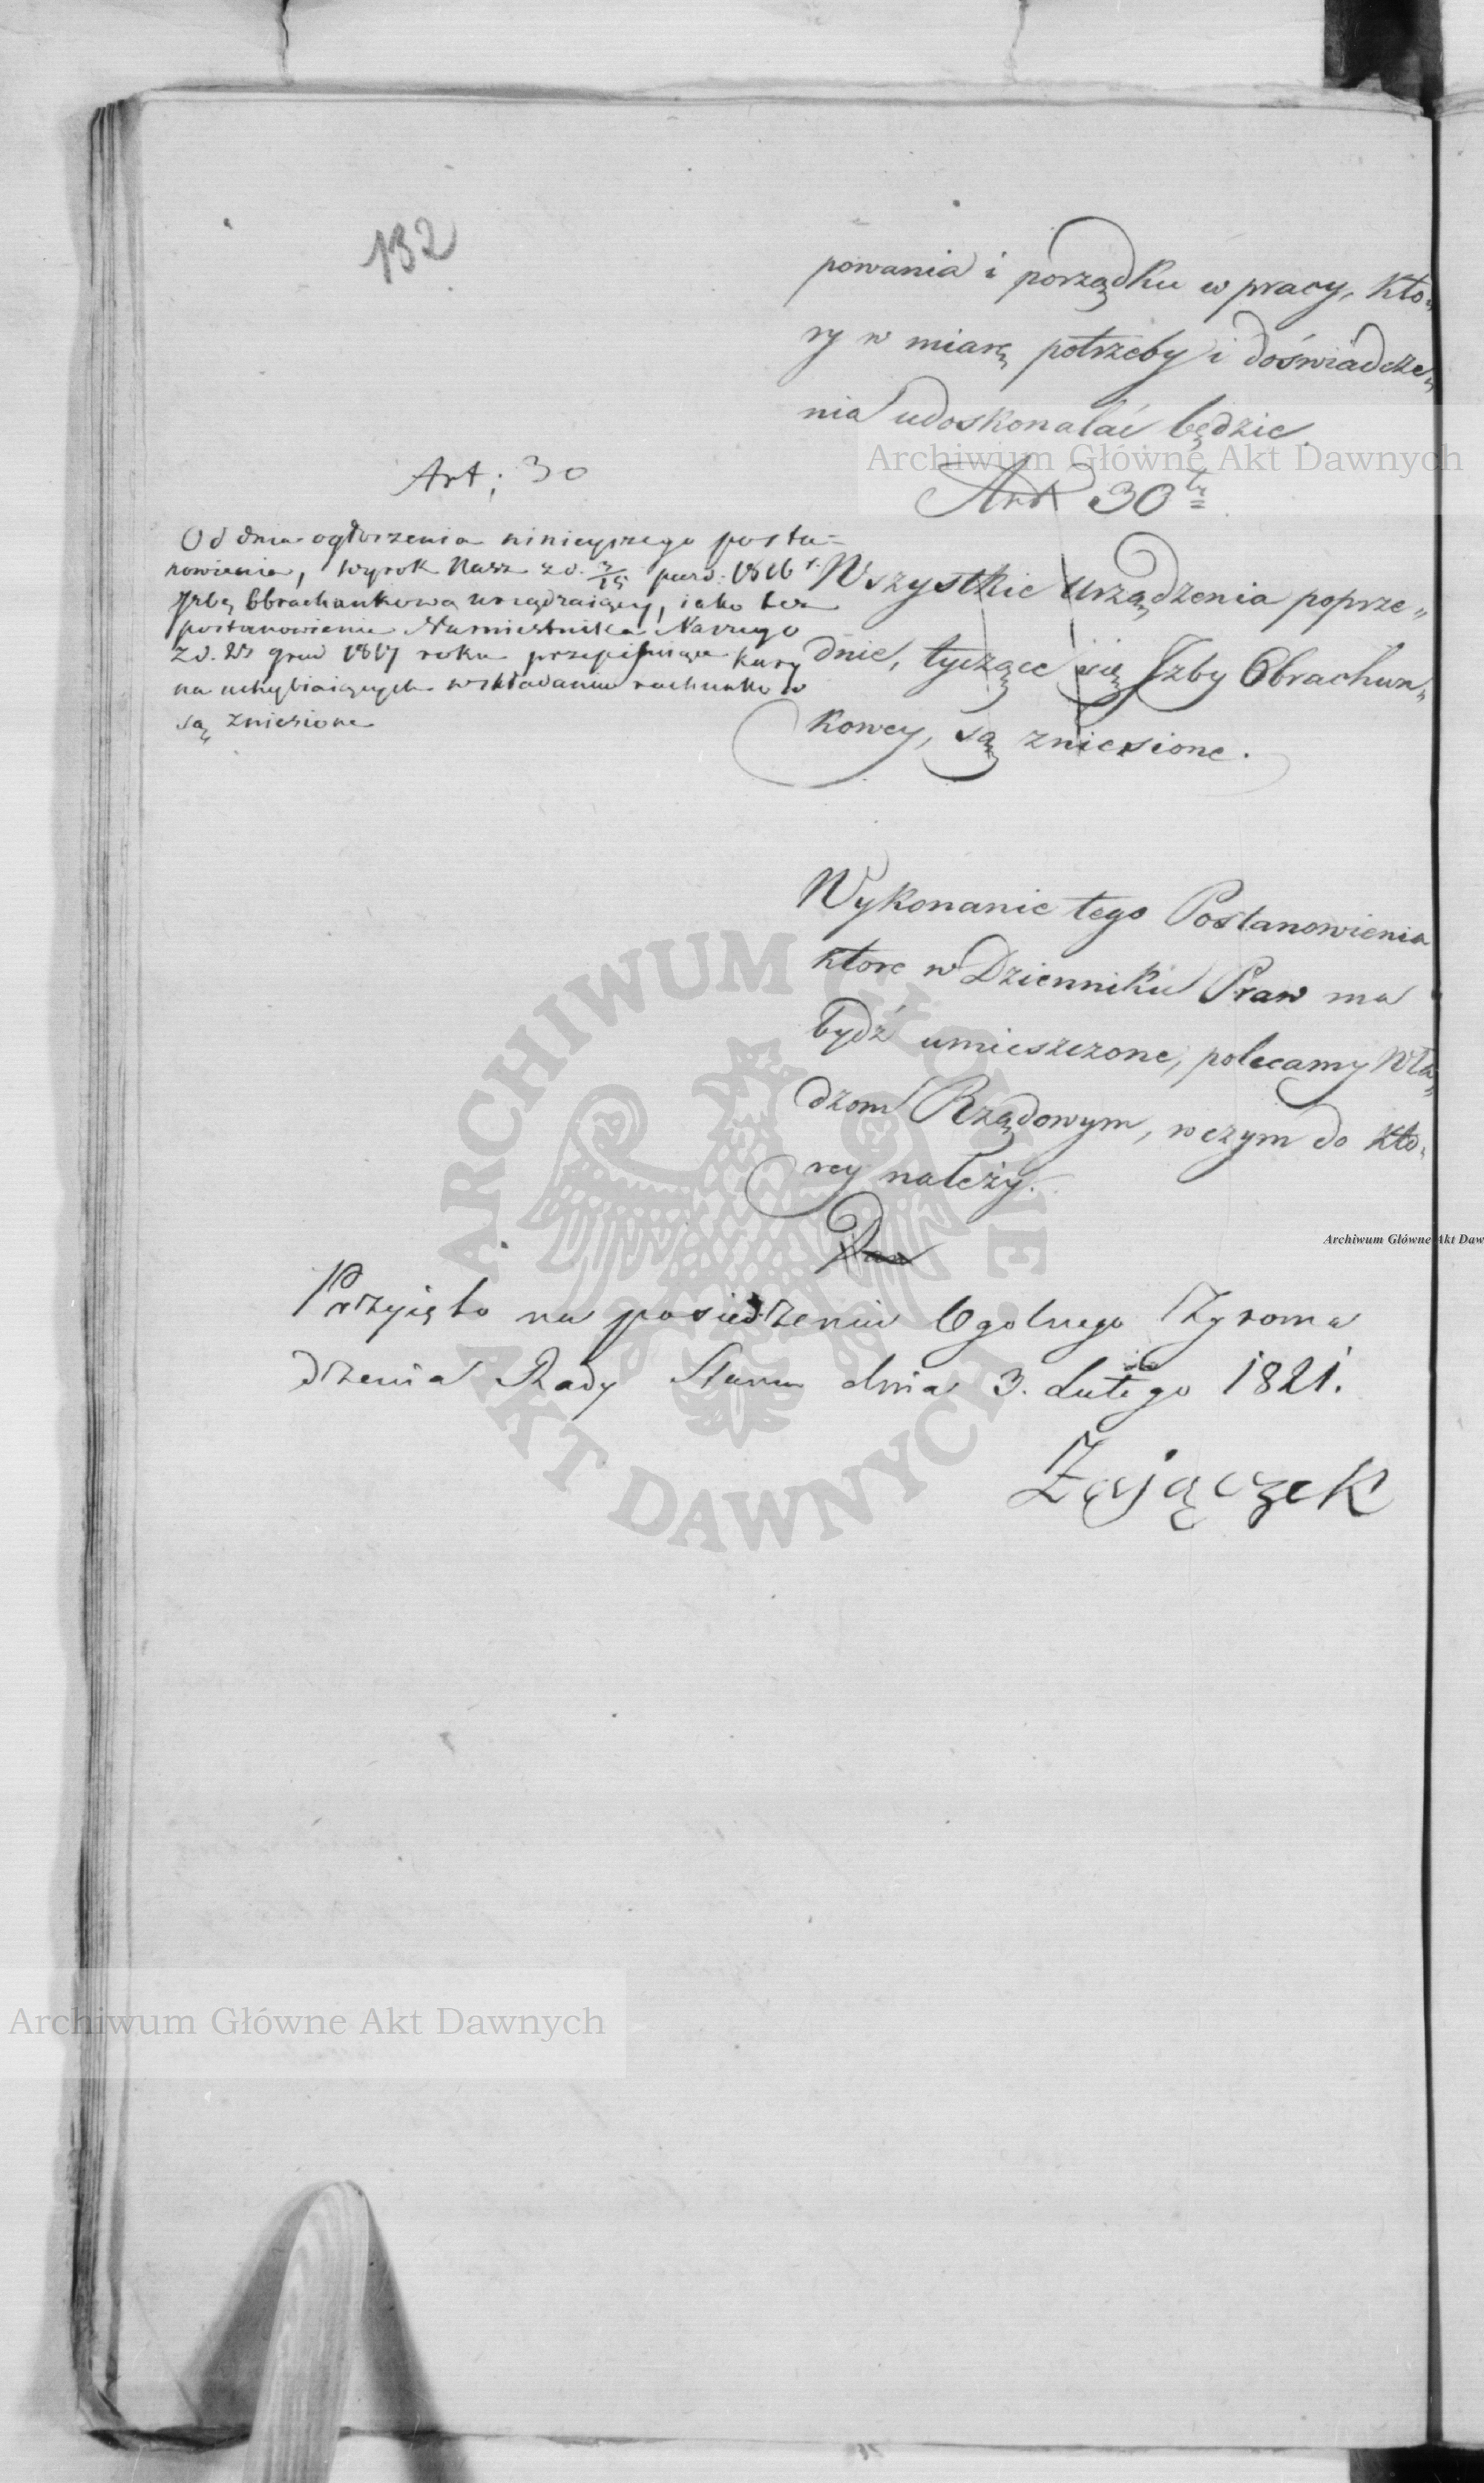 132
powania i porządku w pracy, któ„
ry w miarę potrzeby i doświadcze„
nia udoskonalać będzie.
Art 30ty
Wszystkie Urządzenia poprze„
dnie, tyczące się Jzby Obrachun„
kowey, są zniesione.
Art: 30
Od dnia ogłoszenia ninieyszego posta=
nowienia, wyrok Nasz z d. 3/15 paźd: 1816 r.
Jzbę Obrachunkową urządzaiący, iako też
postanowienie Namiestnika Naszego
z d. grud 1817 roku przepisuiące kary
na uchybiaiących w składaniu rachunków
są zniesione
Wykonanie tego Postanowienia
które w Dzienniku Praw ma
bydź umieszczone, polecamy Wła„
dzom Rządowym, w czym do któ„
rey należy.
Dan
Przyięto na posiedzeniu Ogolnego Zgroma
dzenia Rady Stanu dnia 3. Lutego 1821.
Zajączek
Archiwum Główne Akt Dawnych
ARCHIWUM GŁÓWNE AKT DAWNYCH
Archiwum Główne Akt Daw
Archiwum Główne Akt Dawnych